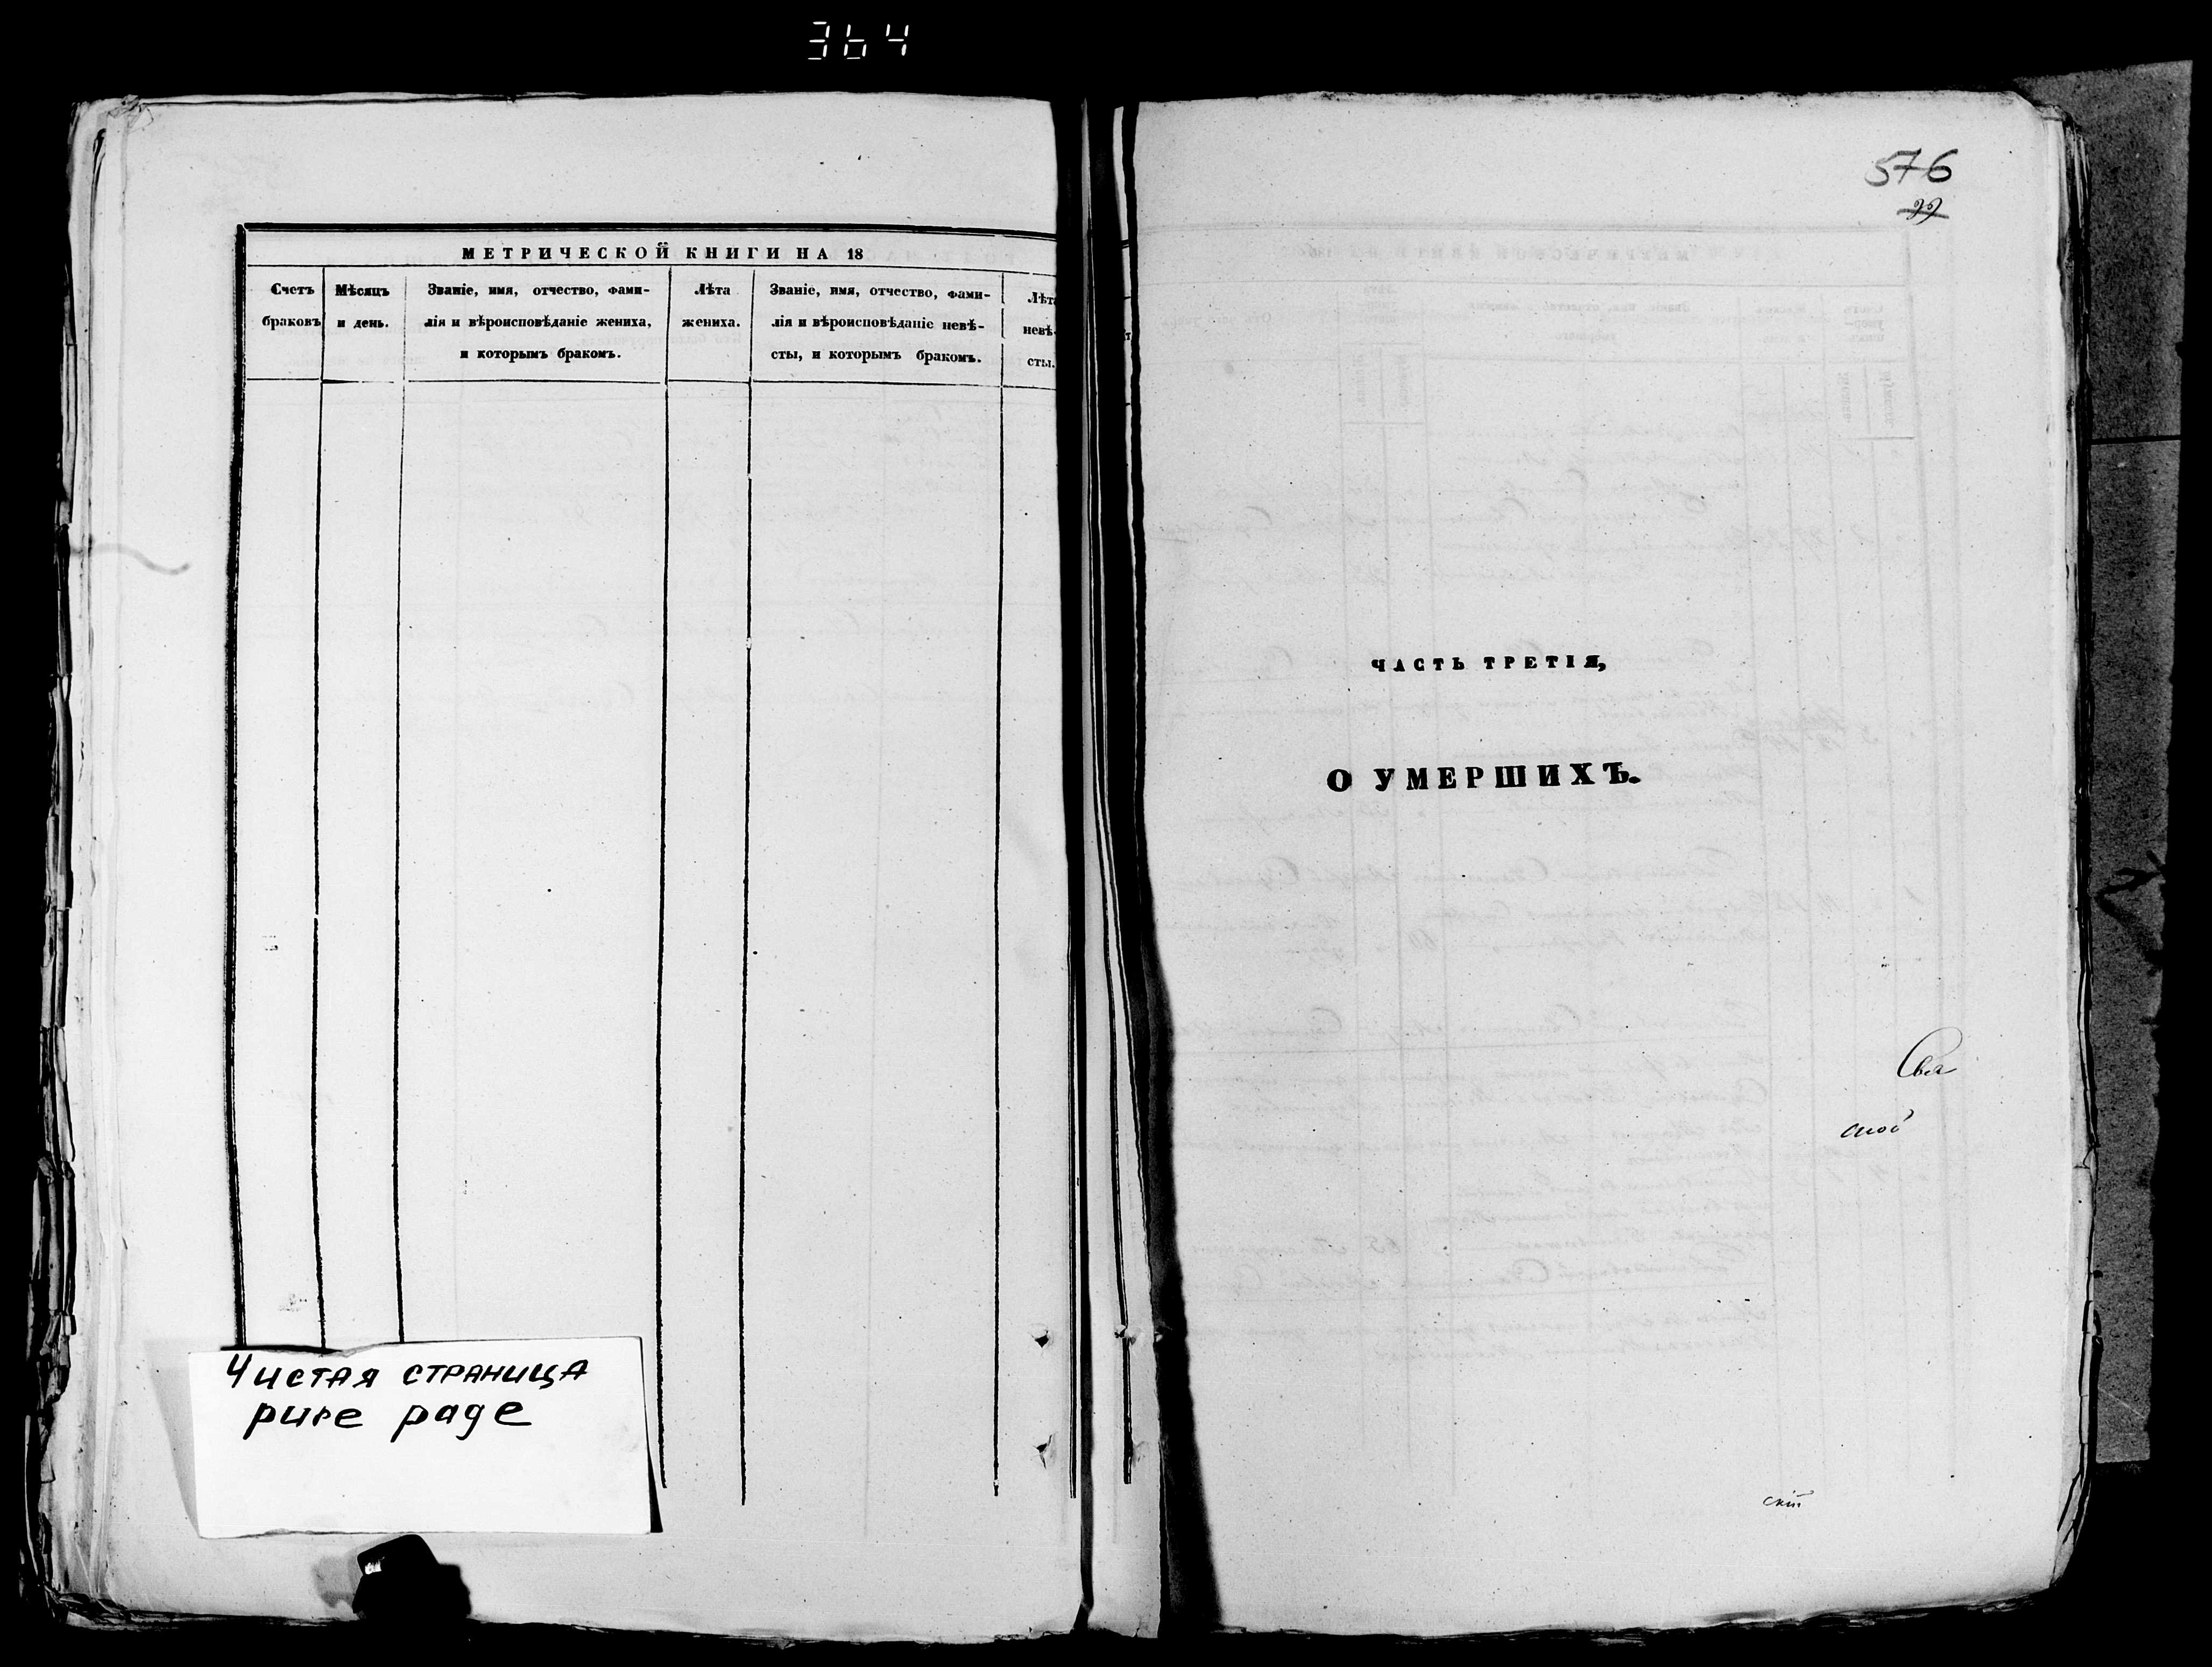 364
МЕТРИЧЕСКОЙ КНИГИ НА 18
Счетъ
браковъ
Мѣсяцъ
и день.
Званіе, имя, отчество, фами-
лія и вѣроисповѣданіе жениха,
и которымъ бракомъ.
Лѣта
жениха.
Званіе, имя, отчество, фами-
лія и вѣроисповѣданіе невѣ-
сты, и которымъ бракомъ.
Лѣта
невѣ-
сты.
Чистая страница
pure page
576
ЧАСТЬ ТРЕТІЯ,
О УМЕРШИХЪ.
Свя